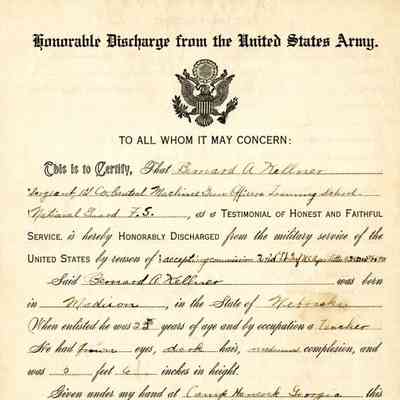 Honorable Discharge from the United States Army.
TO ALL WHOM IT MAY CONCERN:
This is to Certify, That Bernard A Kellner
Sergeant, 1st Co. Central Machine Gun Officers Training School
National Guard F.S., as a TESTIMONIAL OF HONEST AND FAITHFUL
SERVICE, is hereby HONORABLY DISCHARGED from the military service of the
UNITED STATES by reason of accepting commission 2nd Lt
Said Bernard A Kellner was born
in Madison, in the State of Nebraska
When enlisted he was years of age and by occupation a Teacher
He had brown eyes, dark hair, medium complexion, and
was 5 feet 6 inches in height.
Given under my hand at Camp Hancock Georgia this